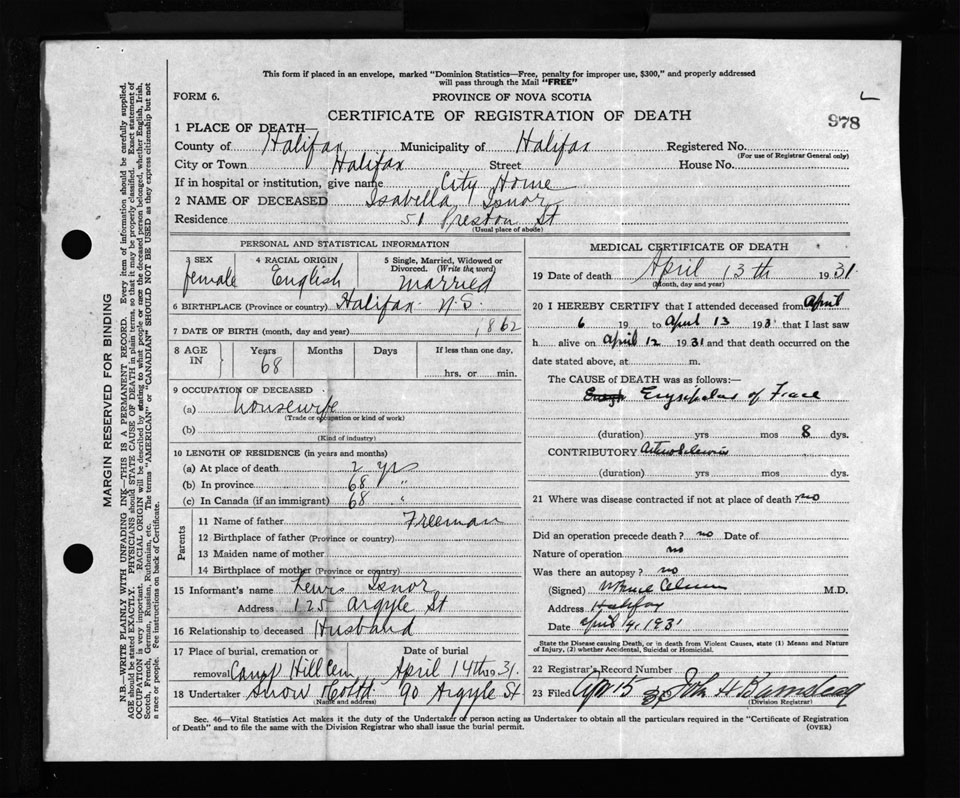 This form if placed in an envelope, marked "Dominion Statistics—Free, penalty for improper use, $300," and properly addressed
will pass through the Mail "FREE"
FORM 6.
PROVINCE OF NOVA SCOTIA
CERTIFICATE OF REGISTRATION OF DEATH
978
1 PLACE OF DEATH—
County of Halifax Municipality of Halifax Registered No.
(For use of Registrar General only)
City or Town Halifax Street House No.
If in hospital or institution, give name City Home
2 NAME OF DECEASED Isabella Isnor
Residence 51 Preston St
(Usual place of abode)
PERSONAL AND STATISTICAL INFORMATION
3 SEX 4 RACIAL ORIGIN 5 Single, Married, Widowed or
Divorced. (Write the word)
female English married
6 BIRTHPLACE (Province or country) Halifax N.S.
7 DATE OF BIRTH (month, day and year) 1862
8 AGE IN Years Months Days If less than one day,
68 hrs. or min.
9 OCCUPATION OF DECEASED
(a) housewife
(Trade or occupation or kind of work)
(b)
(Kind of industry)
10 LENGTH OF RESIDENCE (in years and months)
(a) At place of death 2 yrs
(b) In province 68 "
(c) In Canada (if an immigrant) 68 "
Parents
11 Name of father Freeman
12 Birthplace of father (Province or country)
13 Maiden name of mother
14 Birthplace of mother (Province or country)
15 Informant's name Lewis Isnor
Address 125 Argyle St
16 Relationship to deceased Husband
17 Place of burial, cremation or Date of burial
removal Camp Hill Cem April 14th 1931.
18 Undertaker Snow Co Ltd 90 Argyle St
(Name and address)
MEDICAL CERTIFICATE OF DEATH
19 Date of death April 13th 1931
(Month, day and year)
20 I HEREBY CERTIFY that I attended deceased from April
6 19 to April 13 1931 that I last saw
h alive on April 12 1931 and that death occurred on the
date stated above, at m.
The CAUSE of DEATH was as follows:—
Erysipelas of Face
(duration) yrs mos 8 dys.
CONTRIBUTORY
(duration) yrs mos dys.
21 Where was disease contracted if not at place of death? no
Did an operation precede death? no Date of
Nature of operation no
Was there an autopsy? no
(Signed) M.D.
Address Halifax
Date April 14, 1931
State the Disease causing Death, or in death from Violent Causes, state (1) Means and Nature
of Injury, (2) whether Accidental, Suicidal or Homicidal.
22 Registrar's Record Number
23 Filed Apr 15 John H Barnstead
(Division Registrar)
Sec. 46—Vital Statistics Act makes it the duty of the Undertaker or person acting as Undertaker to obtain all the particulars required in the "Certificate of Registration
of Death" and to file the same with the Division Registrar who shall issue the burial permit.
(OVER)
MARGIN RESERVED FOR BINDING
N.B.—WRITE PLAINLY WITH UNFADING INK—THIS IS A PERMANENT RECORD. Every item of information should be carefully supplied.
AGE should be stated EXACTLY. PHYSICIANS should STATE CAUSE OF DEATH in plain terms, so that it may be properly classified. Exact statement of
OCCUPATION is very important. RACIAL ORIGIN will be described by stating to what people or race the deceased person belonged, whether English, Irish,
Scotch, French, German, Russian, Ruthenian, etc. The terms "AMERICAN" or "CANADIAN" SHOULD NOT BE USED as they express citizenship but not
a race or people. Fee instructions on back of Certificate.